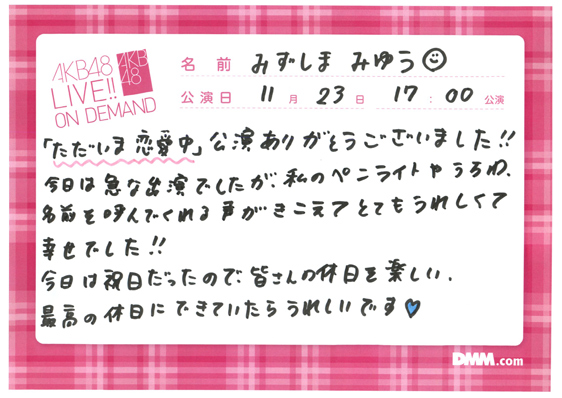 AKB48
LIVE!!
ON DEMAND
AKB
48
名前 みずしま みゆう
公演日 11月23日 17:00公演
「ただいま恋愛中」公演ありがとうございました!!
今日は急な出演でしたが、私のペンライトやうちわ、
名前を呼んでくれる声がきこえてとてもうれしくて
幸せでした!!
今日は祝日だったので、皆さんの休日を楽しい、
最高の休日にできていたらうれしいです
DMM.com